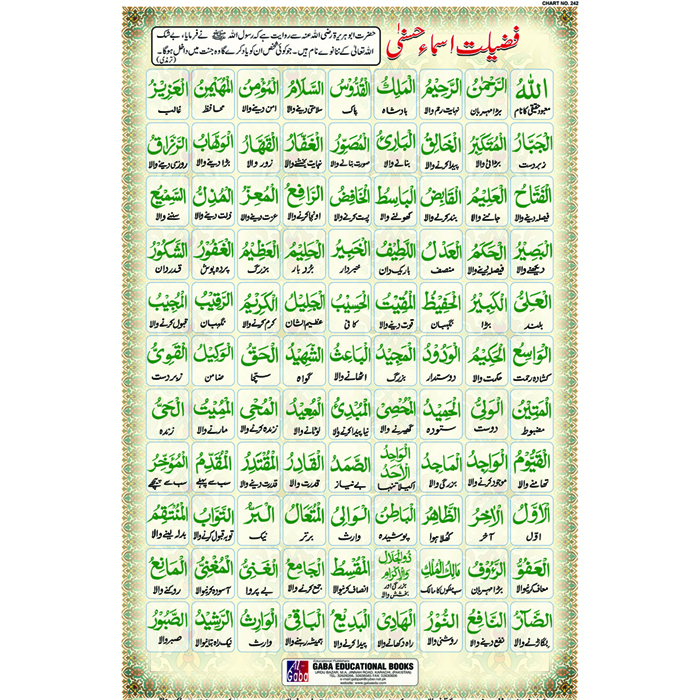 CHART NO. 242
فضیلت اسماء حسنیٰ
حضرت ابو ہریرۃ رضی اللہ عنہ سے روایت ہے کہ رسول اللہ ﷺ نے فرمایا، بے شک
اللہ تعالیٰ کے ننانوے نام ہیں۔ جو کوئی شخص ان کو یاد کرے گا وہ جنت میں داخل ہوگا۔ (ترمذی)
اَللّٰهُ الرَّحْمٰنُ الرَّحِيْمُ الْمَلِكُ الْقُدُّوْسُ السَّلَامُ الْمُؤْمِنُ الْمُهَيْمِنُ الْعَزِيْزُ
معبود حقیقی کا نام بڑا مہربان نہایت رحم والا بادشاہ پاک سلامتی دینے والا امن دینے والا محافظ غالب
الْجَبَّارُ الْمُتَكَبِّرُ الْخَالِقُ الْبَارِئُ الْمُصَوِّرُ الْغَفَّارُ الْقَهَّارُ الْوَهَّابُ الرَّزَّاقُ
زبردست بڑائی والا پیدا کرنے والا بنانے والا صورت بنانے والا نہایت بخشنے والا زور والا بڑا دینے والا روزی دینے والا
الْفَتَّاحُ الْعَلِيْمُ الْقَابِضُ الْبَاسِطُ الْخَافِضُ الرَّافِعُ الْمُعِزُّ الْمُذِلُّ السَّمِيْعُ
فیصلہ دینے والا جاننے والا بند کرنے والا کھولنے والا پست کرنے والا اونچا کرنے والا عزت دینے والا ذلت دینے والا سننے والا
الْبَصِيْرُ الْحَكَمُ الْعَدْلُ اللَّطِيْفُ الْخَبِيْرُ الْحَلِيْمُ الْعَظِيْمُ الْغَفُوْرُ الشَّكُوْرُ
دیکھنے والا فیصلہ دینے والا منصف باریک دان خبردار بردبار بزرگ پردہ پوش قدردان
الْعَلِيُّ الْكَبِيْرُ الْحَفِيْظُ الْمُقِيْتُ الْحَسِيْبُ الْجَلِيْلُ الْكَرِيْمُ الرَّقِيْبُ الْمُجِيْبُ
بلند بڑا نگہبان قوت دینے والا کافی عظیم الشان کرم کرنے والا نگہبان قبول کرنے والا
الْوَاسِعُ الْحَكِيْمُ الْوَدُوْدُ الْمَجِيْدُ الْبَاعِثُ الشَّهِيْدُ الْحَقُّ الْوَكِيْلُ الْقَوِيُّ
کشادہ رحمت حکمت والا دوستدار بزرگ اٹھانے والا گواہ سچا ضامن زبردست
الْمَتِيْنُ الْوَلِيُّ الْحَمِيْدُ الْمُحْصِيُ الْمُبْدِئُ الْمُعِيْدُ الْمُحْيِ الْمُمِيْتُ الْحَيُّ
مضبوط دوست ستودہ گھیرنے والا نیا پیدا کرنے والا لوٹانے والا زندہ کرنے والا مارنے والا زندہ
الْقَيُّوْمُ الْوَاجِدُ الْمَاجِدُ الْوَاحِدُ الْاَحَدُ الصَّمَدُ الْقَادِرُ الْمُقْتَدِرُ الْمُقَدِّمُ الْمُؤَخِّرُ
تھامنے والا موجود کرنے والا بزرگی والا اکیلا تنہا بے نیاز قدرت والا قدرت دینے والا سب سے پہلے سب سے پیچھے
الْاَوَّلُ الْاٰخِرُ الظَّاهِرُ الْبَاطِنُ الْوَالِيْ الْمُتَعَالُ الْبَرُّ التَّوَّابُ الْمُنْتَقِمُ
اوّل آخر کھلا ہوا پوشیدہ وارث برتر نیک توبہ قبول کرنے والا بدلہ لینے والا
الْعَفُوُّ الرَّءُوْفُ مَالِكُ الْمُلْكِ ذُوالْجَلَالِ وَالْاِكْرَامِ الْمُقْسِطُ الْجَامِعُ الْغَنِيُّ الْمُغْنِيُ الْمَانِعُ
معاف کرنیوالا بڑا مہربان سب ملکوں کا مالک بزرگی اور بخشش والا انصاف کرنیوالا جمع کرنے والا بے پروا آسودہ کرنیوالا روکنے والا
الضَّآرُّ النَّافِعُ النُّوْرُ الْهَادِيْ الْبَدِيْعُ الْبَاقِيْ الْوَارِثُ الرَّشِيْدُ الصَّبُوْرُ
بگاڑنے والا نفع دینے والا روشنی والا راہ دکھانے والا پیدا کرنے والا ہمیشہ رہنے والا وارث نیک راہ بتانیوالا صبر والا
Gaba
GABA EDUCATIONAL BOOKS